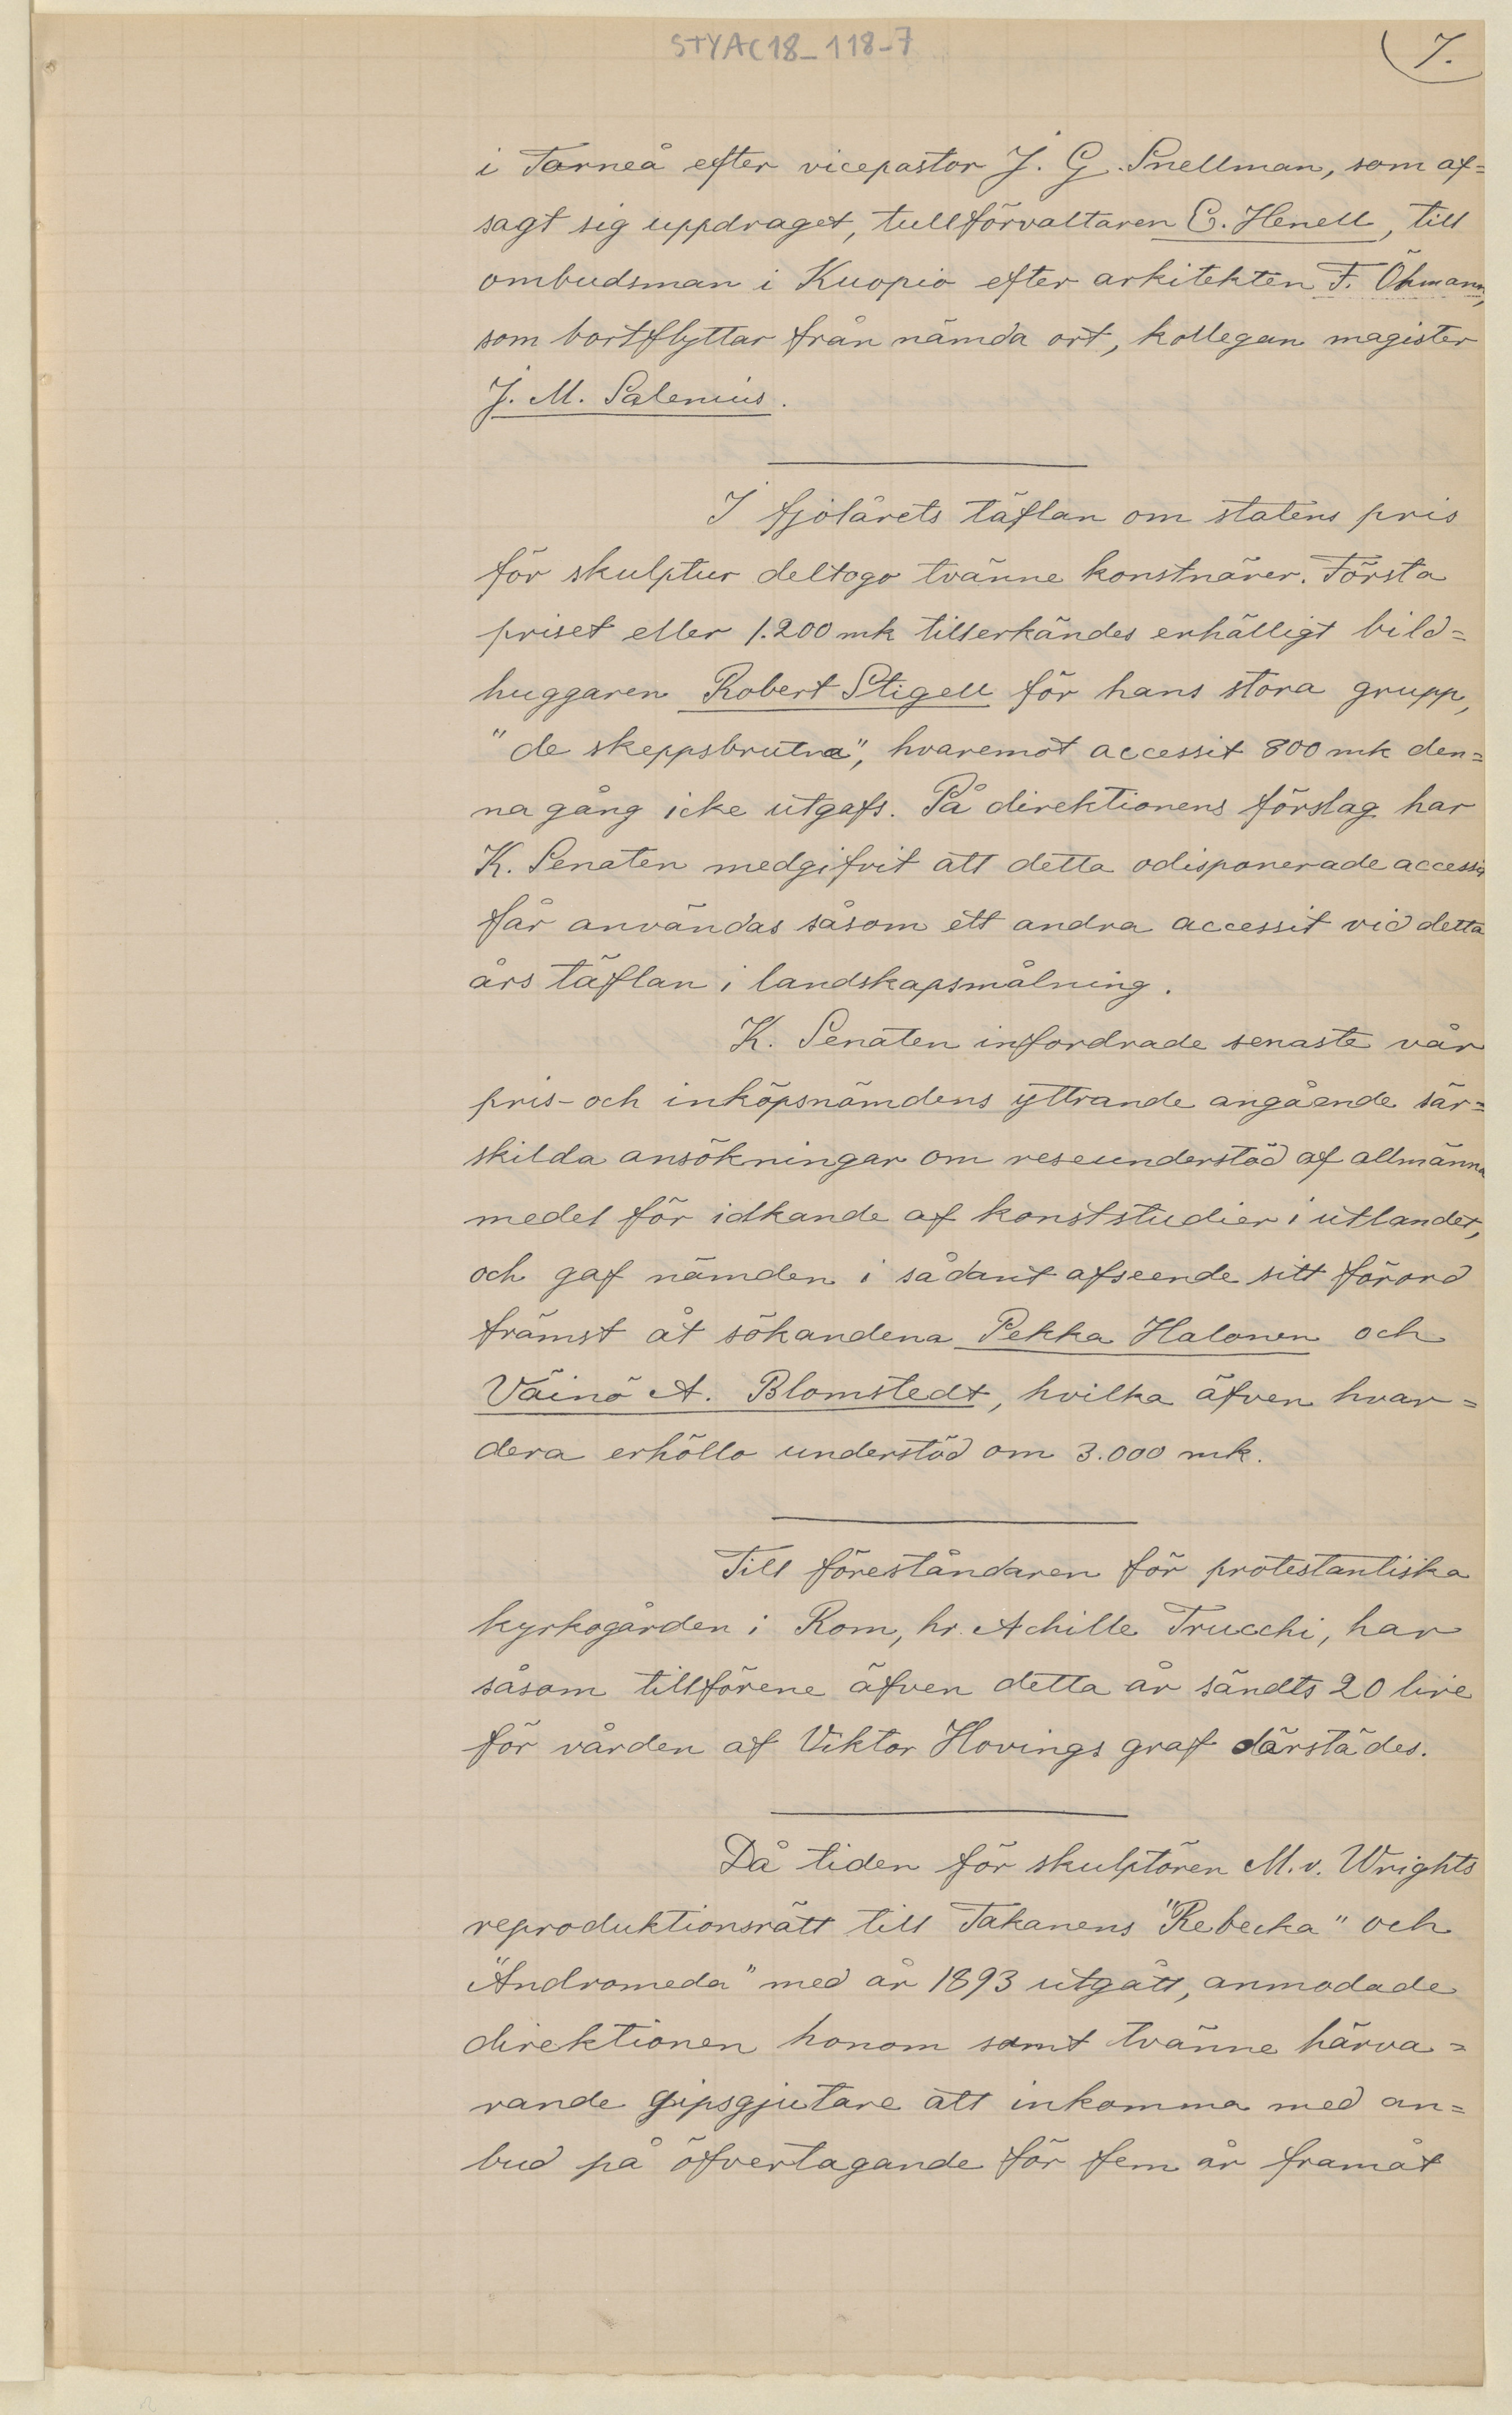 STYAC18_118-7
7.
i Torneå efter vicepastor J. G. Snellman, som af=
sagt sig uppdraget, tullförvaltaren E. Henell, till
ombudsman i Kuopio efter arkitekten F. Öhmann,
som bortflyttar från nämda ort, kollegan magister
J. M. Salenius.
I fjolårets täflan om statens pris
för skulptur deltogo tvänne konstnärer. Första
priset eller 1.200 mk tillerkändes enhälligt bild=
huggaren Robert Stigell för hans stora grupp,
"de skeppsbrutna", hvaremot accessit 800 mk den=
na gång icke utgafs. På direktionens förslag har
K. Senaten medgifvit att detta odisponerade accessit
får användas såsom ett andra accessit vid detta
års täflan i landskapsmålning.
K. Senaten infordrade senaste vår
pris- och inköpsnämdens yttrande angående sär=
skilda ansökningar om reseunderstöd af allmänna
medel för idkande af konststudier i utlandet,
och gaf nämden i sådant afseende sitt förord
främst åt sökandena Pekka Halonen och
Väinö A. Blomstedt, hvilka äfven hvar=
dera erhöllo understöd om 3.000 mk.
Till föreståndaren för protestantiska
kyrkogården i Rom, hr. Achille Trucchi, har
såsom tillförene äfven detta år sändts 20 lire
för vården af Viktor Hovings graf därstädes.
Då tiden för skulptören M. v. Wrights
reproduktionsrätt till Takanens "Rebecka" och
"Andromeda" med år 1893 utgått, anmodade
direktionen honom samt tvänne härva=
rande gipsgjutare att inkomma med an=
bud på öfvertagande för fem år framåt